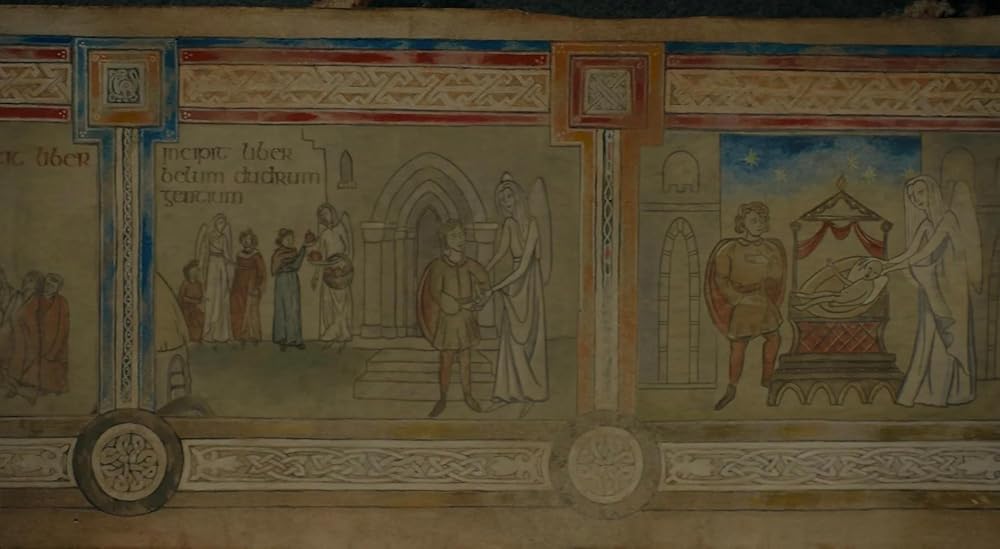 it liber
incipit liber
belum dudrum
gentium